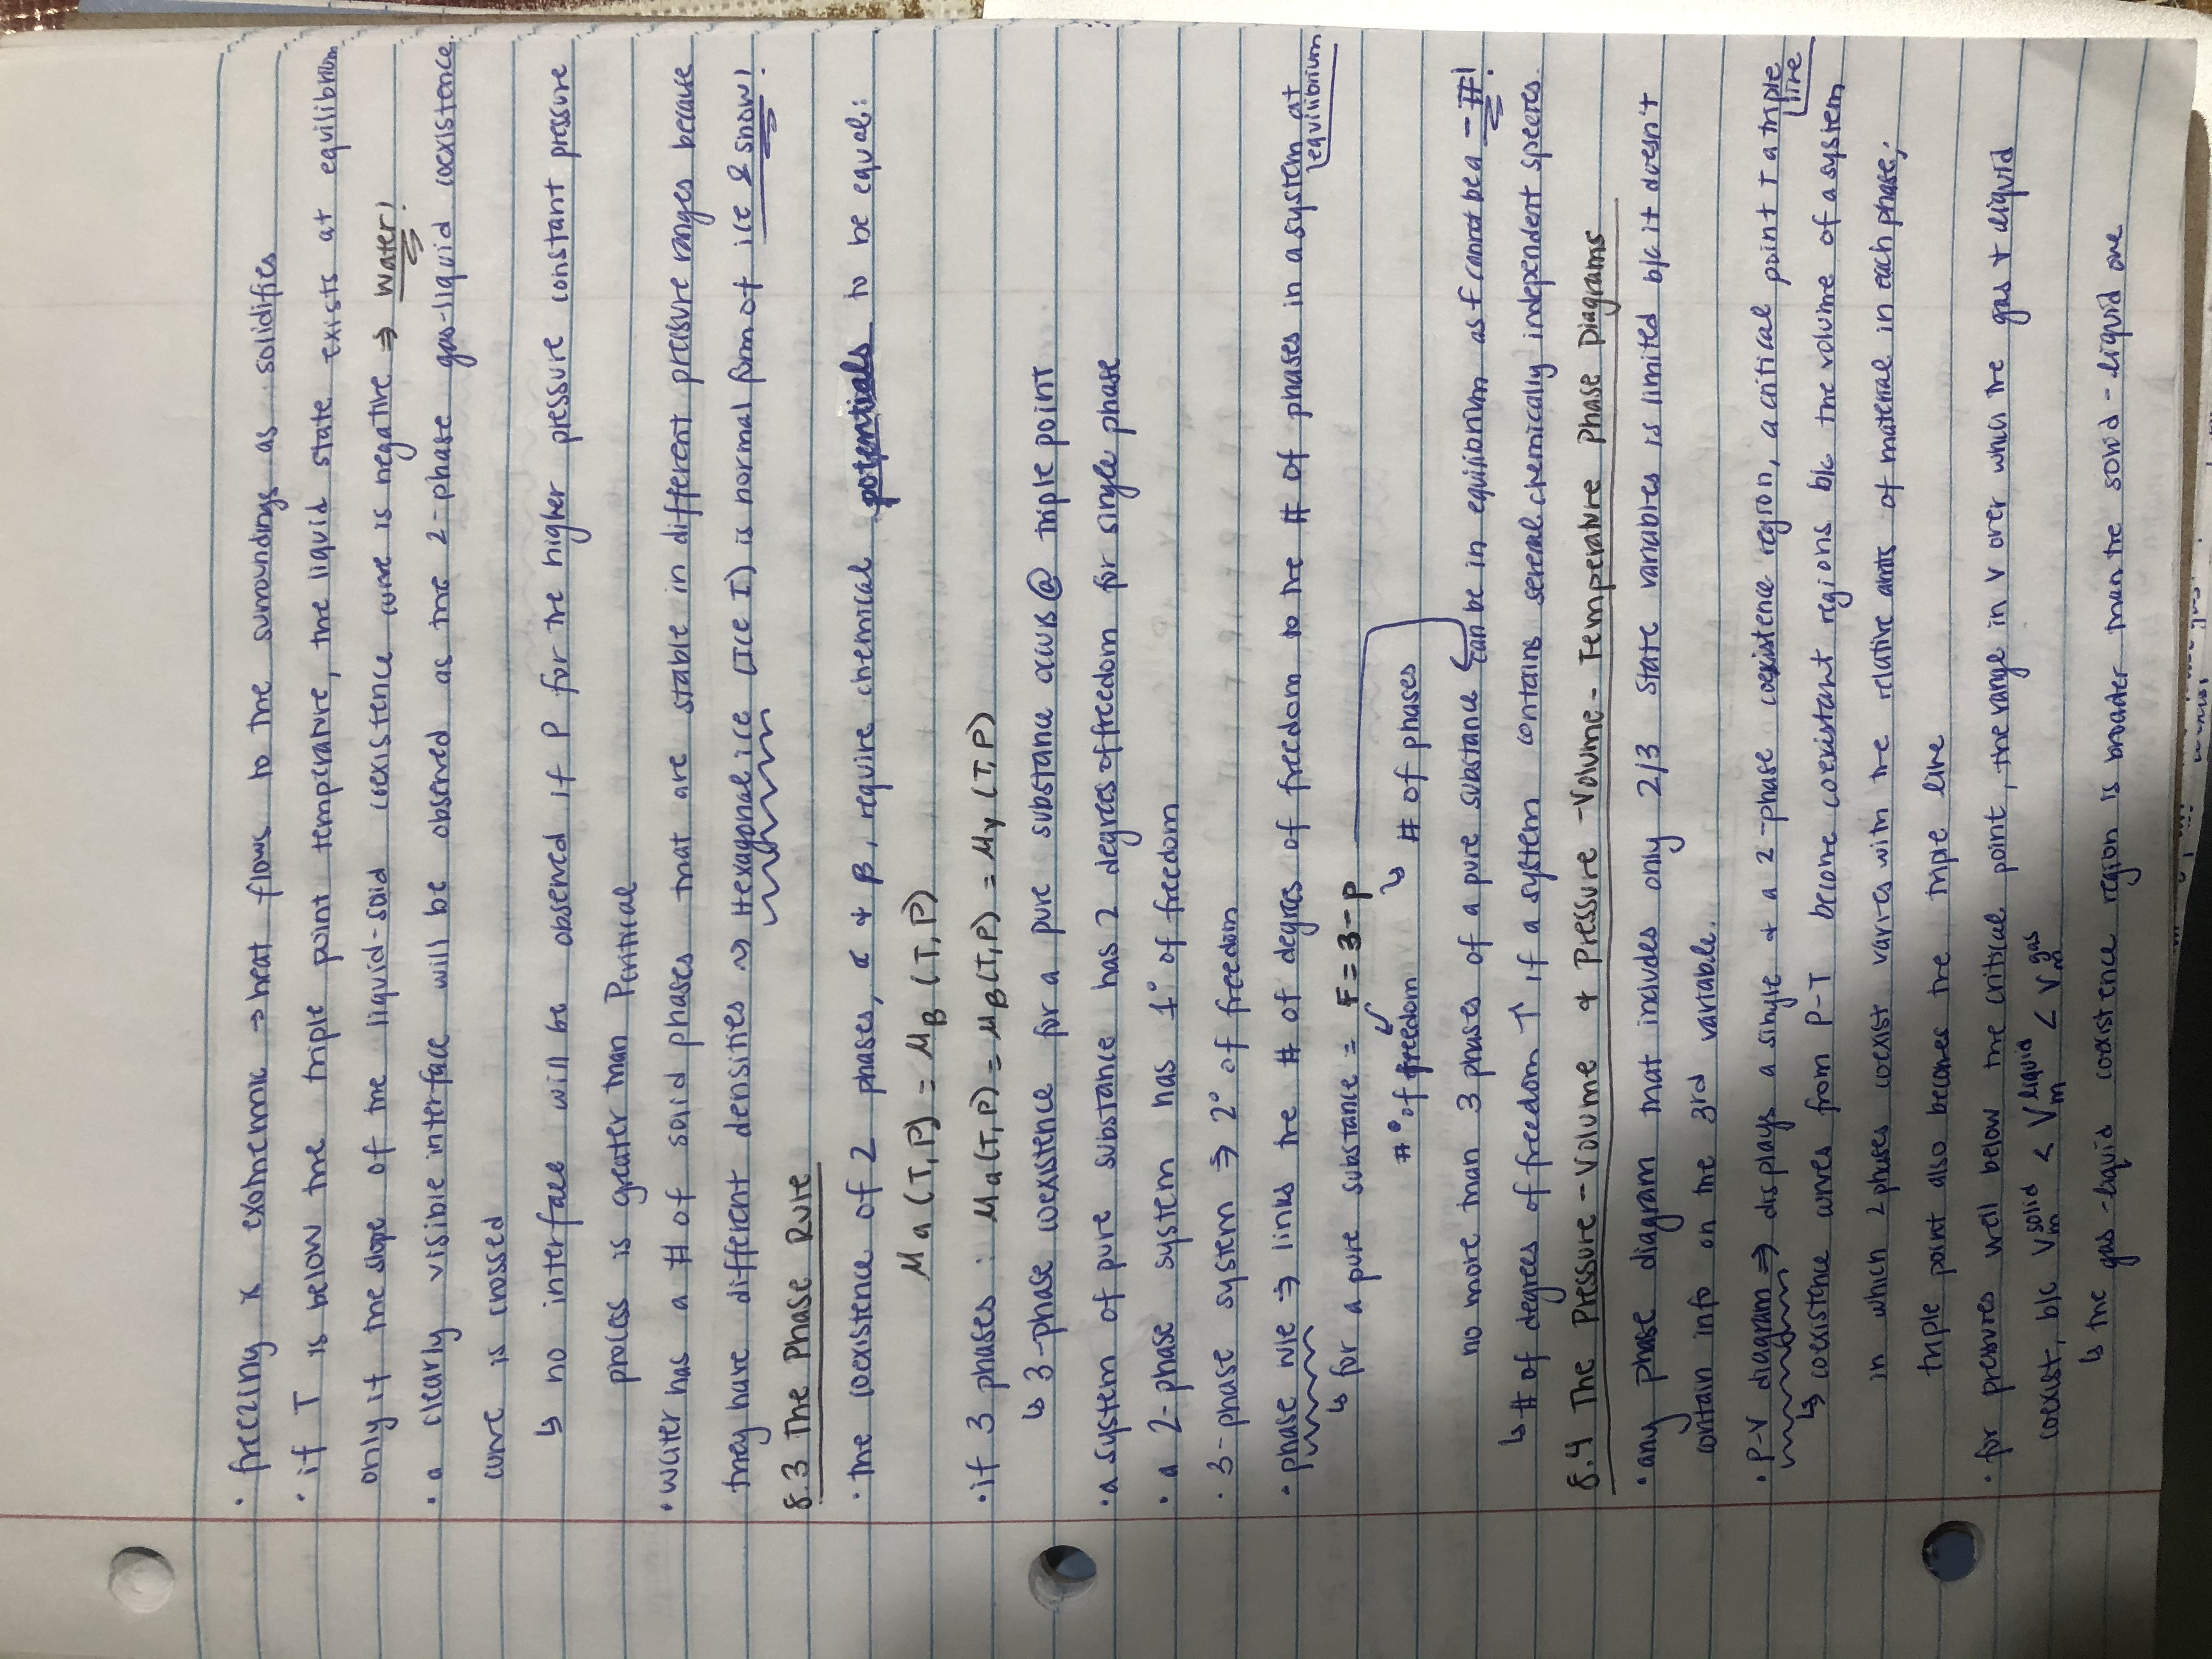 · freezing is exothermic → heat flows to the surroundings as solidifies
· if T is below the triple point temperature, the liquid state exists at equilibrium
only if the slope of the liquid-solid coexistence curve is negative ⇒ water!
· a clearly visible interface will be observed as the 2-phase gas-liquid coexistence
curve is crossed
↳ no interface will be observed if P for the higher pressure constant pressure
process is greater than Pcritical
· water has a # of solid phases that are stable in different pressure ranges because
they have different densities ~> Hexagonal ice (Ice I) is normal form of ice & snow!
8.3 The Phase Rule
· the coexistence of 2 phases, α + β, require chemical potentials to be equal:
μα (T,P) = μβ (T,P)
· if 3 phases : μα(T,P) = μβ(T,P) = μγ (T,P)
↳ 3-phase coexistence for a pure substance occurs @ triple point
· a system of pure substance has 2 degrees of freedom for single phase
· a 2-phase system has 1° of freedom
· 3-phase system ⇒ 2° of freedom
· phase rule ⇒ links the # of degrees of freedom to the # of phases in a system at
equilibrium
↳ for a pure substance = F = 3-p
# ° of freedom ↳ # of phases
no more than 3 phases of a pure substance can be in equilibrium as F cannot be a - #!
↳ # of degrees of freedom ↑ if a system contains several chemically independent species.
8.4 The Pressure-Volume + Pressure-Volume-Temperature Phase Diagrams
· any phase diagram that includes only 2/3 state variables is limited b/c it doesn't
contain info on the 3rd variable.
· P-V diagram ⇒ displays a single + a 2-phase coexistence region, a critical point + a triple
line
↳ coexistence curves from P-T become coexistant regions b/c the volume of a system
in which 2 phases coexist varies with the relative amts of material in each phase;
triple point also becomes the triple line
· for pressures well below the critical point, the range in V over which the gas + liquid
coexist, b/c Vm^solid < Vm^liquid < Vm^gas
↳ the gas-liquid coexistence region is broader than the solid-liquid one